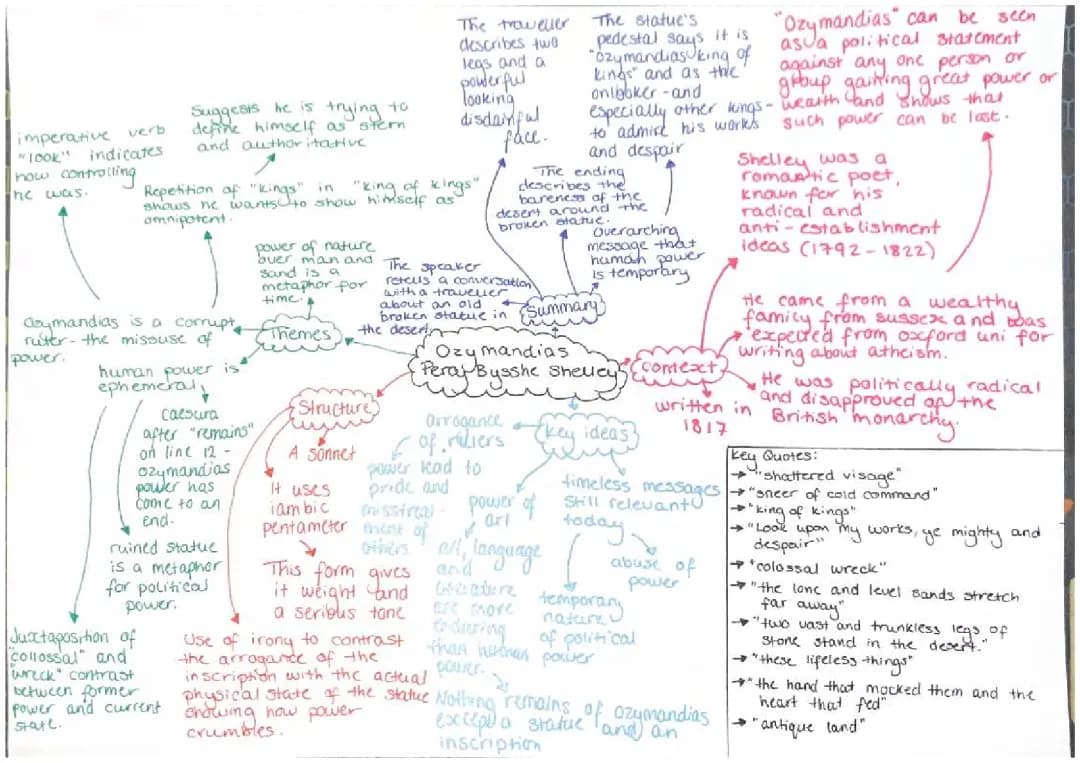 The traveller
describes two
legs and a
powerful
looking
disdainful
face.
The statue's
pedestal says it is
"Ozymandias king of
kings" and as the
onlooker - and
especially other kings -
to admire his works
and despair
"Ozymandias" can be seen
as a political statement
against any one person or
group gaining great power or
wealth and shows that
such power can be lost.
imperative verb
"look" indicates
how controlling
he was.
Suggests he is trying to
define himself as stern
and authoritative
Repetition of "kings" in "king of kings"
shows he wants to show himself as
omnipotent.
The ending
describes the
bareness of the
desert around the
broken statue.
Overarching
message that
human power
is temporary
Shelley was a
romantic poet,
known for his
radical and
anti-establishment
ideas (1792-1822)
power of nature
over man and
sand is a
metaphor for
time.
The speaker
retells a conversation
with a traveller
about an old
broken statue in
the desert
Summary
Ozymandias is a corrupt
ruler - the misuse of
power.
Themes
human power is
ephemeral
Ozymandias
Percy Bysshe Shelley
context
He came from a wealthy
family from sussex and was
expelled from oxford uni for
writing about atheism.
He was politically radical
and disapproved of the
British monarchy.
written in
1817
caesura
after "remains"
on line 12 -
ozymandias
power has
come to an
end.
ruined statue
is a metaphor
for political
power.
Juxtaposition of
"collossal" and
"wreck" contrast
between former
power and current
state.
Structure
A sonnet
It uses
iambic
pentameter
This form gives
it weight and
a serious tone
Use of irony to contrast
the arrogance of the
inscription with the actual
physical state of the statue
showing how power
crumbles.
key ideas
arrogance
of rulers
power lead to
pride and
mistreat-
ment of
others
power of
art
art, language
and
literature
are more
enduring
than human
power.
Nothing remains of ozymandias
except a statue and an
inscription
timeless messages
still relevant
today
abuse of
power
temporary
nature
of political
power
Key Quotes:
→ "shattered visage"
→ "sneer of cold command"
→ "king of kings"
→ "Look upon my works, ye mighty and
despair"
→ "colossal wreck"
→ "the lone and level sands stretch
far away"
→ "two vast and trunkless legs of
stone stand in the desert."
→ "these lifeless things"
→ "the hand that mocked them and the
heart that fed"
→ "antique land"